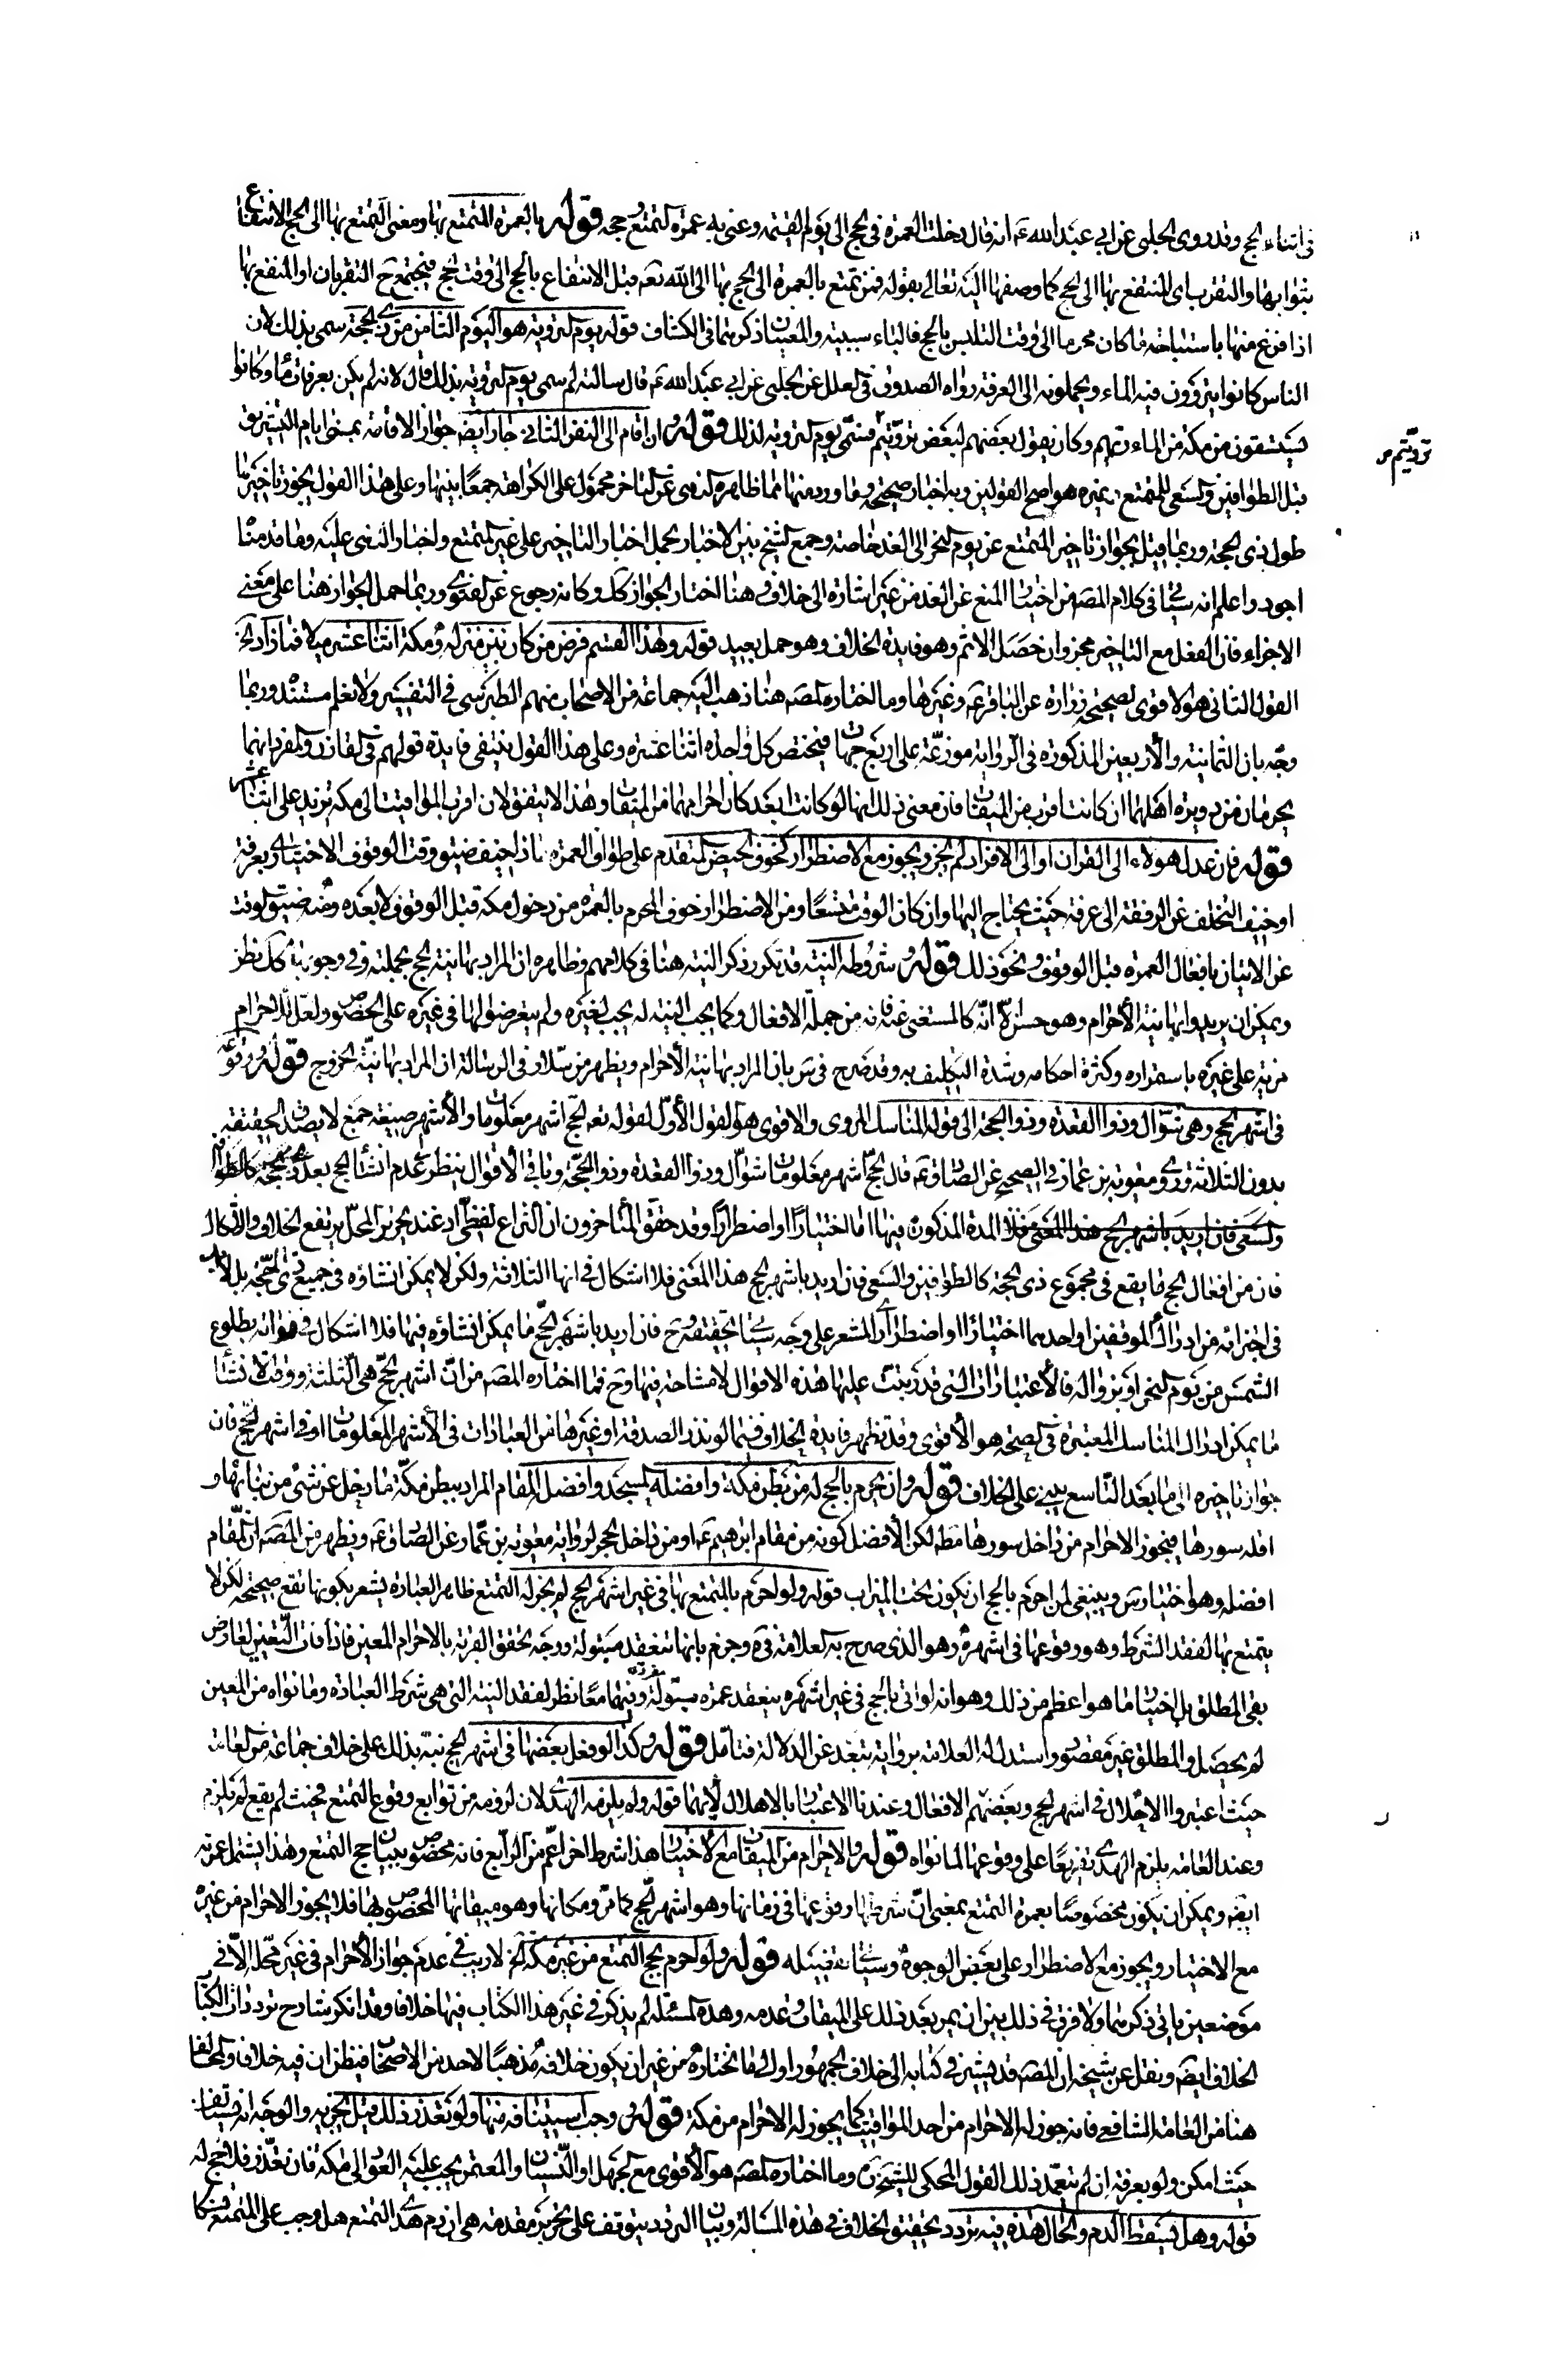 في اثناء الحج وقد روى الحلبي عن ابي عبد الله عم انه قال دخلت العمرة في الحج الى يوم القيمة وعنى به عمرة التمتع وحجه قوله بالعمرة المتمتع بها ومعنى التمتع بها الى الحج الانتفاع
بثوابها والتقرب اي المنتفع بها الى الحج كما وصفها اليه تعالى بقوله فمن تمتع بالعمرة الى الحج بها الى الله تعم قبل الانتفاع بالحج الى وقت الحج فيجتمع ح التقربان او المنتفع بها
اذا فرغ منها باستباحة ما كان محرما الى وقت التلبس بالحج فالباء سببية والمعنيان ذكرهما في الكشاف قوله يوم التروية هو اليوم الثامن من ذي الحجة سمي بذلك لان
الناس كانوا يتروون فيه الماء ويحملونه الى العرفة رواه الصدوق في العلل عن الحلبي عن ابي عبد الله عم قال سالته لم سمي يوم التروية بذلك قال لانه لم يكن بعرفات ماء وكانوا
يستقون من مكة من الماء ريهم وكان يقول بعضهم لبعض ترويتم فسمي يوم التروية لذلك قوله ولو اقام الى النفر الثاني جاز ايضه جواز الاقامة بمنى ايام التشريق
ترويتم ص
قبل الطوافين والسعي للمتمتع وغيره هو اصح القولين وبه اخبار صحيحة وما ورد منها مما ظاهره النهي عن التاخر محمول على الكراهة جمعا بينها وعلى هذا القول يجوز تاخيرها
طول ذي الحجة وربما قيل بجواز تاخير المتمتع عن يوم النحر الى الغد خاصة وجمع الشيخ بين الاخبار بحمل اخبار التاخير على غير المتمتع واخبار النهي عليه وما قدمناه
اجود واعلم انه سياتي في كلام المصه من اختيار المنع عن الغد من غير اشارة الى خلاف وهنا اختار الجواز كل وكانه رجوع عن الفتوى وربما حمل الجواز هنا على معنى
الاجزاء فان الفعل مع التاخير مجز وان حصل الاثم وهو فايدة الخلاف وهو حمل بعيد قوله وهذا القسم فرض من كان بين منزله ومكة اثنا عشر ميلا فما زاد الخ
القول الثاني هو الاقوى لصحيحة زرارة عن الباقر عم وغيرها وما اختاره المصه هنا ذهب اليه جماعة من الاصحاب منهم الطبرسي في التفسير ولا نعلم مستنده وربما
وجه بان الثمانية والاربعين المذكورة في الرواية موزعة على اربع جهات فيختص كل واحدة اثنا عشرة وعلى هذا القول ينتفي فايدة قولهم في القارن والمفرد انهما
يحرمان من دويرة اهلهما ان كانت اقرب من الميقات فان معنى ذلك انها لو كانت ابعد كان احرامهما من الميقات وهذا لا يتفق لان اقرب المواقيت الى مكة تزيد على اثنا عشر
قوله فان عدل هولاء الى القران او الى الافراد لم يجز ويجوز مع الاضطرار كخوف الحيض المتقدم على طواف العمرة اذا خيف ضيق وقت الوقوف الاختياري بعرفة
او خيف التخلف عن الرفقة الى عرفة حيث يحتاج اليها وان كان الوقت متسعا ومن الاضطرار خوف المحرم بالعمرة من دخول مكة قبل الوقوف لا بعده ومنه ضيق الوقت
عن الاتيان بافعال العمرة قبل الوقوف ونحو ذلك قوله وشروطه النية قد تكرر ذكر النية هنا في كلامهم وظاهره ان المراد بها نية الحج بجملته وفي وجوبها كل نظر
ويمكن ان يريدوا بها نية الاحرام وهو حسن الا انه كالمستغنى عنه فانه من جملة الافعال وكما يجب النية له يجب لغيره ولم يتعرضوا لها في غيره على الخصوص ولعل للاحرام
مزية على غيره باستمراره وكثرة احكامه وشدة التكليف به وقد صرح في س بان المراد بها نية الاحرام ويظهر من سلار في الرسالة ان المراد بها نية الخروج قوله ووقوعه
في اشهر الحج وهي شوال وذو القعدة وذو الحجة الى قوله المناسك المروي والاقوى هو القول الاول لقوله تعه الحج اشهر معلومات والاشهر صيغة جمع لا يصدق الحقيقة
بدون الثلاثة وروى معوية بن عمار في الصحيح عن الصادق عم قال الحج اشهر معلومات شوال وذو القعدة وذو الحجة وباقي الاقوال ينظر الى عدم انشاء الحج بعد ذي الحجة كالطواف
والسعي فان اريد باشهر الحج هذا المعنى فلا المدة المذكورة فيها اما اختيارا او اضطرارا وقد حقق المتاخرون ان النزاع لفظي اذ عند تحرير المحل يرتفع الخلاف والاشكال
فان من افعال الحج ما يقع في مجموع ذي الحجة كالطوافين والسعي فان اريد باشهر الحج هذا المعنى فلا اشكال في انها الثلاثة ولكن لا يمكن انشاؤه في جميع ذي الحجة بل لا بد
في اجزائه من ادراك الموقفين او احدهما اختيارا او اضطراري المشعر على وجه سياتي تحقيقه وح فان اريد باشهر الحج ما يمكن انشاؤه فيها فلا اشكال في فواته بطلوع
الشمس من يوم النحر او بزواله فالاعتبارات التي قد ترتبت عليها هذه الاقوال لا مشاحة فيها وح فما اختاره المصه من ان اشهر الحج هي الثلثة ووقت الانشاء
ما يمكن ادراك المناسك المعتبرة في الصحة هو الاقوى وقد تظهر فايدة الخلاف فيما لو نذر الصدقة او غيرها من العبادات في الاشهر المعلومات او في اشهر الحج فان
جواز تاخيره الى ما بعد التاسع يبنى على الخلاف قوله وان يحرم بالحج له من بطن مكة وافضله المسجد وافضل المقام المراد ببطن مكة ما دخل عن شيء من بنائها و
اقله سورها فيجوز الاحرام من داخل سورها مطه لكن الافضل كونه من مقام ابرهيم عم او من داخل الحجر لرواية معوية بن عمار عن الصادق عم ويظهر من المصه ان المقام
افضله وهو اختيار س وينبغي لمن احرم بالحج ان يكون تحت الميزاب قوله ولو احرم بالمتمتع بها في غير اشهر الحج لم يجز له التمتع ظاهر العبارة يشعر بكونها تقع صحيحة لكن لا
يتمتع بها لفقد الشرط وهو وقوعها في اشهره وهو الذي صرح به العلامة في ه وجزم بانها تنعقد مبتولة ووجه تحقق القربة بالاحرام المعين فاذا فات التعيين لعارض
بقي المطلق بل اختيار ما هو اعظم من ذلك وهو انه لو اتى بالحج في غير اشهره ينعقد عمرة مبتولة وفيهما معا نظر لفقد النية التي هي شرط العبادة وما نواه من المعين
لم يحصل والمطلق غير مقصود واستدل له العلامة برواية تبعد عن الدلالة فتامل قوله وكذا لو فعل بعضها في اشهر الحج نبه بذلك على خلاف جماعة من العامة
حيث اعتبروا الاحلال في اشهر الحج وبعضهم الافعال وعندنا الاعتبار بالاهلال لانهما قوله ولم يلزمه الهدي لان لزومه من توابع وقوع التمتع فحيث لم يقع لم يلزم
وعند العامة يلزم الهدي تفريعا على وقوعها لما نواه قوله والاحرام من الميقات مع الاختيار هذا شرط اخر اعم من الرابع فانه مخصوص ببيان حج التمتع وهذا يشمل عمرته
ايضه ويمكن ان يكون مخصوصا بعمرة التمتع بمعنى ان شرطها وقوعها في زمانها وهو اشهر الحج كما مر ومكانها وهو ميقاتها المخصوص بها فلا يجوز الاحرام من غيره
مع الاختيار ويجوز مع الاضطرار على بعض الوجوه وسياتي تفصيله قوله ولو احرم بحج التمتع من غير مكة الخ لا ريب في عدم جواز الاحرام في غير محله الا في
موضعين ياتي ذكرهما ولا فرق في ذلك بين ان يمر بعد ذلك على الميقات وعدمه وهذه المسئلة لم يذكر في غير هذا الكتاب فيها خلافا وقد انكر شارح ترددات الكتاب
الخلاف ايضه ونقل عن شيخه ان المصه قد يشير في كتابه الى خلاف الجمهور او الى ما يختاره من غير ان يكون خلافه مذهبا لاحد من الاصحاب فيظن ان فيه خلافا والمخالف
هنا من العامة الشافعي فانه جوز له الاحرام من احد المواقيت كما يجوز له الاحرام من مكة قوله وجب استينافه منها ولو تعذر ذلك قيل يجزيه والوجه انه يستانفه
حيث امكن ولو بعرفة ان لم يتعمد ذلك القول المحكي للشيخ ره وما اختاره المصه هو الاقوى مع الجهل او النسيان والمعتمر يجب عليه العود الى مكة فان تعذر فلا حج له
قوله وهل يسقط الدم والحال هذه فيه تردد تحقيق الخلاف في هذه المسالة وبيان التردد يتوقف على تحرير مقدمة هي ان دم هدي التمتع هل وجب على المتمتع نسكا